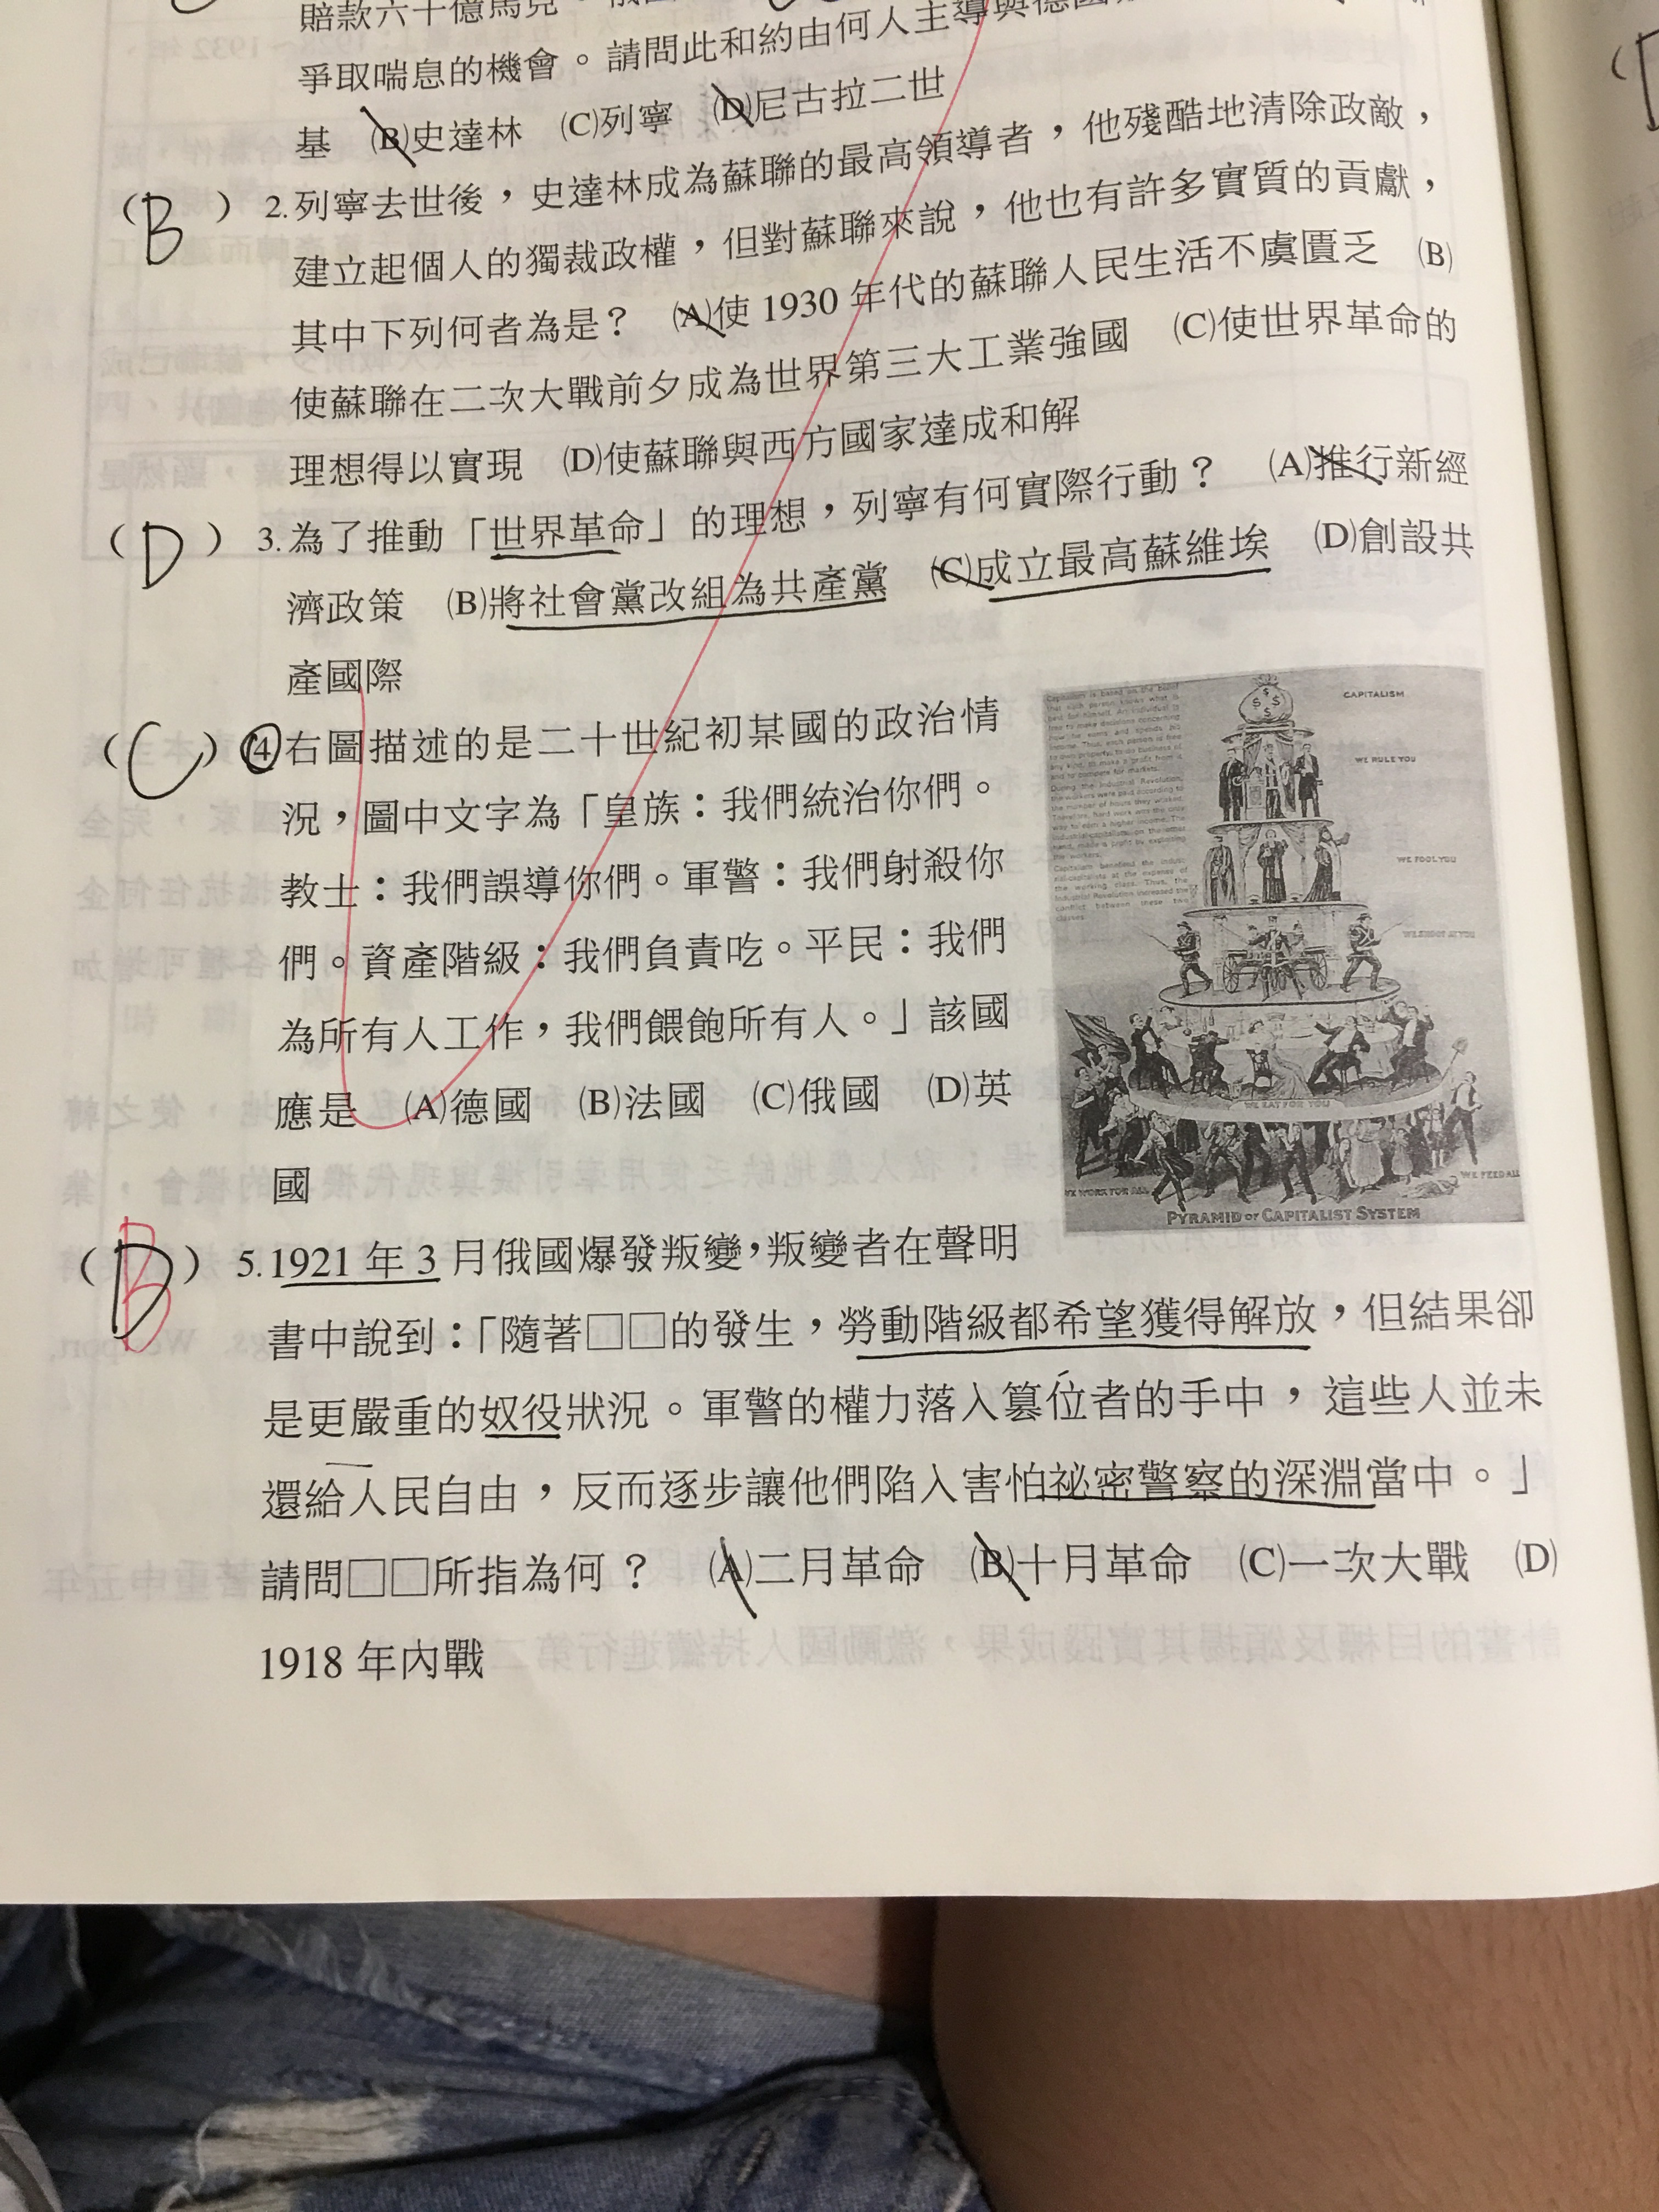 賠款六十億馬克。俄
爭取喘息的機會。請問此和約由何人主導與德國
基 (B)史達林 (C)列寧 (D)尼古拉二世
(B) 2.列寧去世後，史達林成為蘇聯的最高領導者，他殘酷地清除政敵，
建立起個人的獨裁政權，但對蘇聯來說，他也有許多實質的貢獻，
其中下列何者為是？ (A)使1930年代的蘇聯人民生活不虞匱乏 (B)
使蘇聯在二次大戰前夕成為世界第三大工業強國 (C)使世界革命的
理想得以實現 (D)使蘇聯與西方國家達成和解
(D) 3.為了推動「世界革命」的理想，列寧有何實際行動？ (A)推行新經
濟政策 (B)將社會黨改組為共產黨 (C)成立最高蘇維埃 (D)創設共
產國際
(C) 4右圖描述的是二十世紀初某國的政治情
況，圖中文字為「皇族：我們統治你們。
教士：我們誤導你們。軍警：我們射殺你
們。資產階級：我們負責吃。平民：我們
為所有人工作，我們餵飽所有人。」該國
應是 (A)德國 (B)法國 (C)俄國 (D)英
國
CAPITALISM
WE RULE YOU
WE FOOL YOU
WE SHOOT AT YOU
WE EAT FOR YOU
WE WORK FOR ALL
WE FEED ALL
PYRAMID OF CAPITALIST SYSTEM
Capitalism is based on the belief
During the Industrial Revolution,
the workers were paid according to
the number of hours they worked.
Therefore, hard work was the only
way to earn a higher income. The
industrial capitalists, on the other
hand, made a profit by exploiting
the workers.
Capitalism benefited the indust-
rial capitalists at the expense of
the working class. Thus, the
Industrial Revolution increased the
conflict between these two
classes.
(B) 5.1921年3月俄國爆發叛變，叛變者在聲明
書中說到：「隨著□□的發生，勞動階級都希望獲得解放，但結果卻
是更嚴重的奴役狀況。軍警的權力落入篡位者的手中，這些人並未
還給人民自由，反而逐步讓他們陷入害怕祕密警察的深淵當中。」
請問□□所指為何？ (A)二月革命 (B)十月革命 (C)一次大戰 (D)
1918年內戰